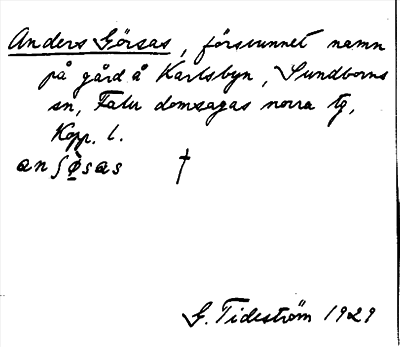 Anders Görsas, försvunnet namn
på gård å Karlsbyn, Sundborns
sn, Falu domsagas norra tg,
Kopp. l.
anʃø̀sas †
G. Tideström 1929